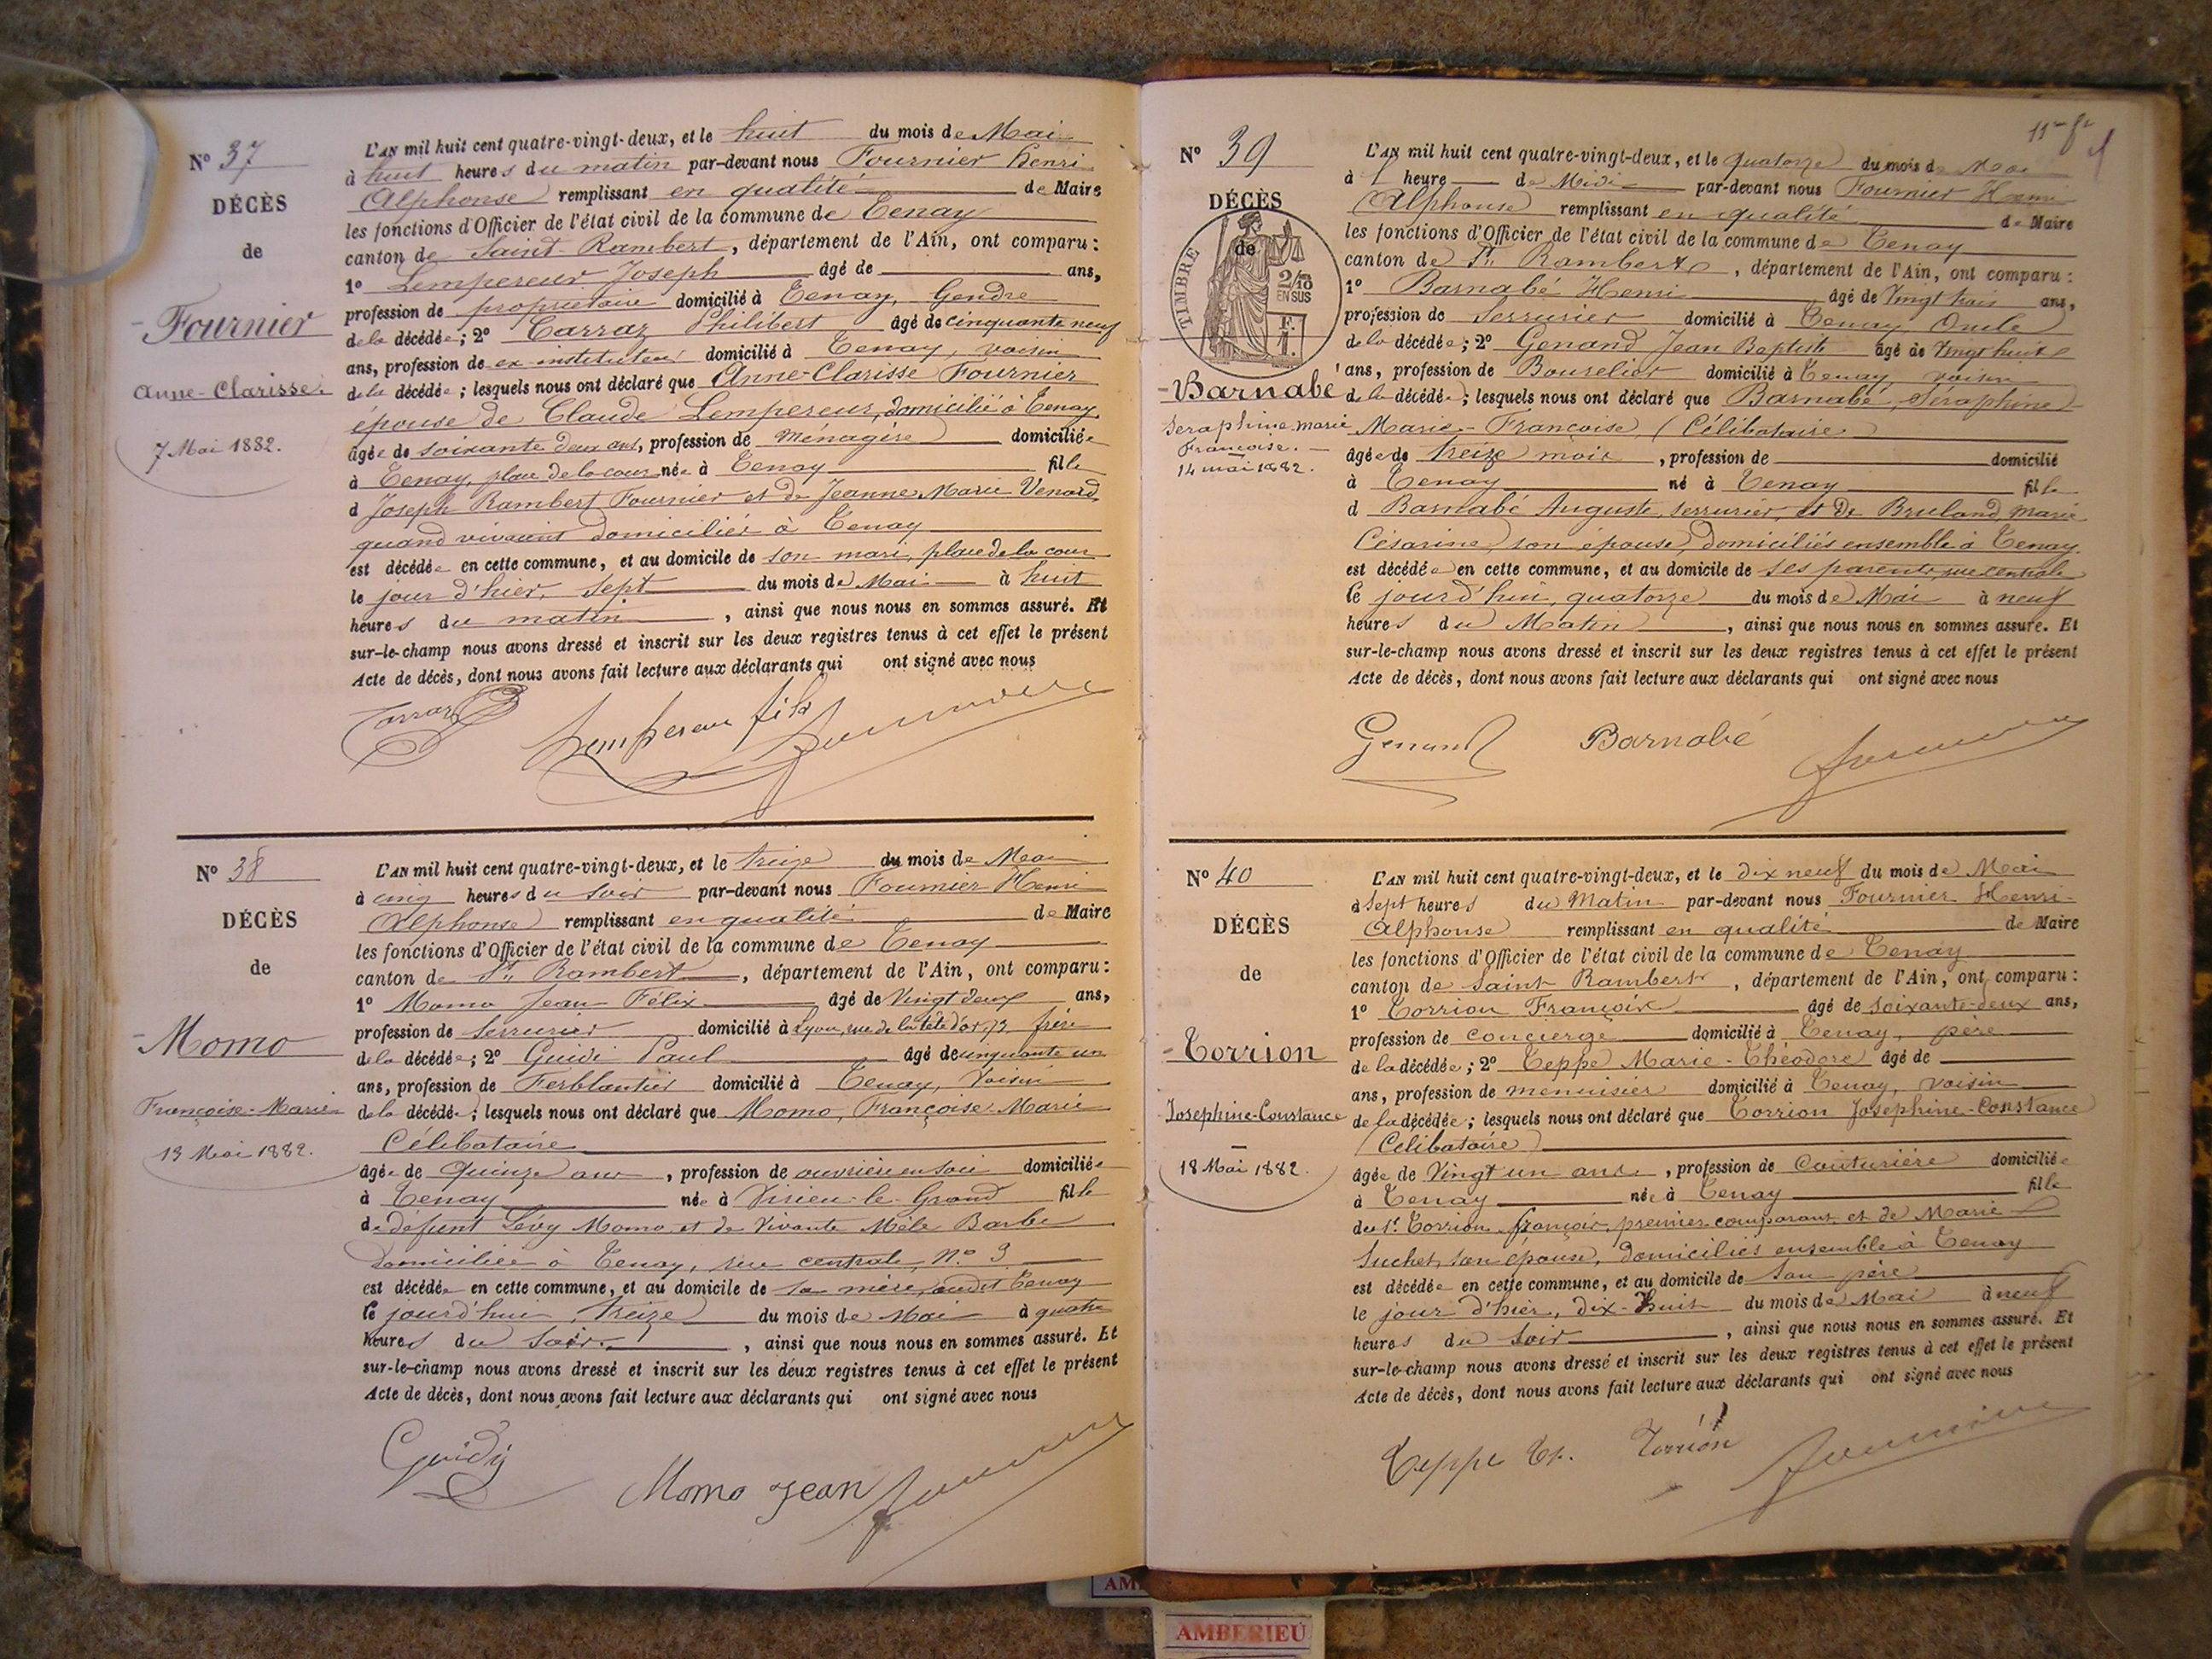 N° 37
DÉCÈS
de
Fournier
Anne-Clarisse.
7 Mai 1882.
L'AN mil huit cent quatre-vingt-deux, et le huit du mois de Mai
à huit heures du matin par-devant nous Fournier Henri
Alphonse remplissant en qualité de Maire
les fonctions d'Officier de l'état civil de la commune de Tenay
canton de Saint-Rambert, département de l'Ain, ont comparu:
1° Lempereur Joseph âgé de ans,
profession de propriétaire domicilié à Tenay, Gendre
de la décédée; 2° Carraz Philibert âgé de cinquante neuf
ans, profession de ex-instituteur domicilié à Tenay, voisin
de la décédée; lesquels nous ont déclaré que Anne-Clarisse Fournier
épouse de Claude Lempereur, domicilié à Tenay
âgée de soixante deux ans, profession de Ménagère domiciliée
à Tenay, place de la cour née à Tenay fille
d Joseph Rambert Fournier et de Jeanne Marie Venard
quand vivaient domiciliés à Tenay
est décédée en cette commune, et au domicile de son mari, place de la cour
le jour d'hier, sept du mois de Mai à huit
heures du matin, ainsi que nous nous en sommes assuré. Et
sur-le-champ nous avons dressé et inscrit sur les deux registres tenus à cet effet le présent
Acte de décès, dont nous avons fait lecture aux déclarants qui ont signé avec nous
Carraz Lempereur fils Fournier
N° 38
DÉCÈS
de
Momo
Françoise-Marie
13 Mai 1882.
L'AN mil huit cent quatre-vingt-deux, et le treize du mois de Mai
à cinq heures du soir par-devant nous Fournier Henri
Alphonse remplissant en qualité de Maire
les fonctions d'Officier de l'état civil de la commune de Tenay
canton de St Rambert, département de l'Ain, ont comparu:
1° Momo Jean Félix âgé de Vingt deux ans,
profession de serrurier domicilié à Lyon, rue de la tête d'or, 73 frère
de la décédée; 2° Guidi Paul âgé de cinquante un
ans, profession de Ferblantier domicilié à Tenay, Voisin
de la décédée; lesquels nous ont déclaré que Momo, Françoise-Marie
Célibataire
âgée de Quinze ans, profession de ouvrière en soie domiciliée
à Tenay née à Virieu-le-Grand fille
de défunt Lévy Momo et de vivante Mèle Barbe
Domiciliée à Tenay, rue centrale, N° 3
est décédée en cette commune, et au domicile de sa mère, audit Tenay
le jourd'hui, treize du mois de Mai à quatre
heures du soir, ainsi que nous nous en sommes assuré. Et
sur-le-champ nous avons dressé et inscrit sur les deux registres tenus à cet effet le présent
Acte de décès, dont nous avons fait lecture aux déclarants qui ont signé avec nous
Guidy Momo Jean Fournier
N° 39
DÉCÈS
de
TIMBRE
2/10
EN SUS
F.
1.
Barnabé
Seraphine marie
Françoise.
14 mai 1882.
L'AN mil huit cent quatre-vingt-deux, et le quatorze du mois de Mai
à 1 heure de Midi par-devant nous Fournier Henri
Alphonse remplissant en qualité de Maire
les fonctions d'Officier de l'état civil de la commune de Tenay
canton de St Rambert, département de l'Ain, ont comparu:
1° Barnabé Henri âgé de Vingt trois ans,
profession de Serrurier domicilié à Tenay Oncle
de la décédée; 2° Genand Jean Baptiste âgé de Vingt huit
ans, profession de Bourelier domicilié à Tenay, voisin
de la décédée; lesquels nous ont déclaré que Barnabé, Séraphine
Marie-Françoise, (Célibataire)
âgée de treize mois, profession de domicilié
à Tenay né à Tenay fille
d Barnabé Auguste, serrurier, et de Bruland Marie
Césarine, son épouse, domiciliés ensemble à Tenay
est décédée en cette commune, et au domicile de ses parents, rue centrale
le jourd'hui, quatorze du mois de Mai à neuf
heures du Matin, ainsi que nous nous en sommes assuré. Et
sur-le-champ nous avons dressé et inscrit sur les deux registres tenus à cet effet le présent
Acte de décès, dont nous avons fait lecture aux déclarants qui ont signé avec nous
Genand Barnabé Fournier
N° 40
DÉCÈS
de
Torrion
Josephine-Constance
18 Mai 1882.
L'AN mil huit cent quatre-vingt-deux, et le dix neuf du mois de Mai
à Sept heures du Matin par-devant nous Fournier Henri-
Alphonse remplissant en qualité de Maire
les fonctions d'Officier de l'état civil de la commune de Tenay
canton de Saint Rambert, département de l'Ain, ont comparu:
1° Torrion François âgé de soixante-deux ans,
profession de concierge domicilié à Tenay, père
de la décédée; 2° Teppe Marie-Théodore âgé de
ans, profession de menuisier domicilié à Tenay, voisin
de la décédée; lesquels nous ont déclaré que Torrion Joséphine-Constance
(Célibataire)
âgée de Vingt un ans, profession de Couturière domiciliée
à Tenay née à Tenay fille
du Sr. Torrion françois, premier comparant et de Marie
Suchet, son épouse, domiciliés ensemble à Tenay
est décédée en cette commune, et au domicile de Son père
le jour d'hier, dix-huit du mois de Mai à neuf
heures du Soir, ainsi que nous nous en sommes assuré. Et
sur-le-champ nous avons dressé et inscrit sur les deux registres tenus à cet effet le présent
Acte de décès, dont nous avons fait lecture aux déclarants qui ont signé avec nous
Teppe Th. Torrion Fournier
AMBERIEU